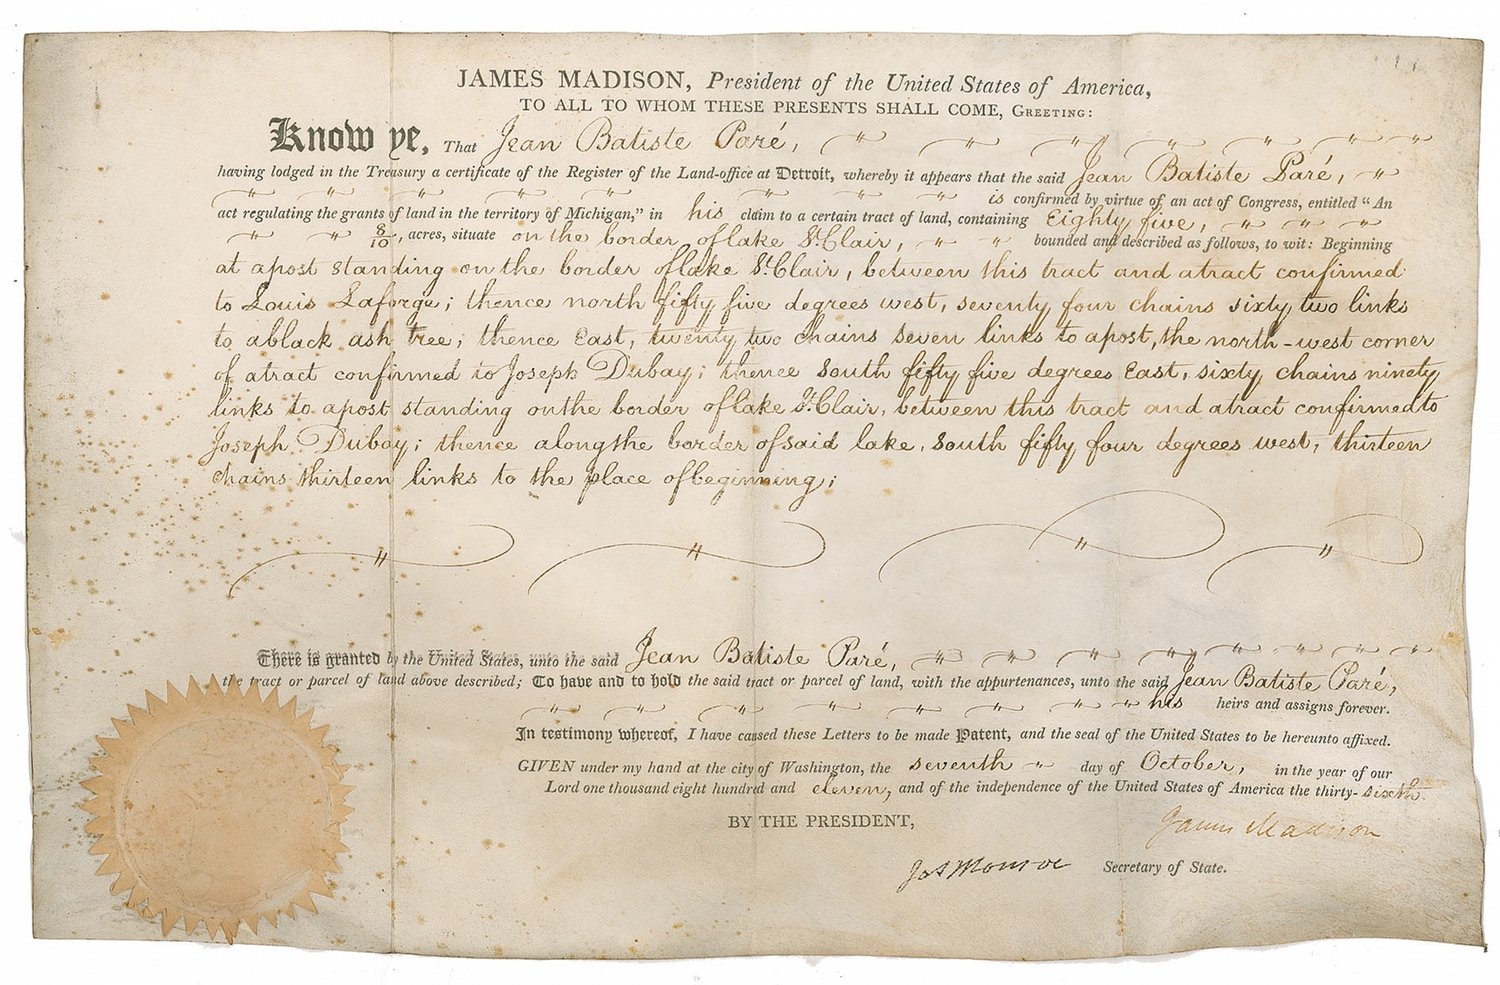 JAMES MADISON, President of the United States of America,
TO ALL TO WHOM THESE PRESENTS SHALL COME, GREETING:
Know ye, That Jean Batiste Paré,
having lodged in the Treasury a certificate of the Register of the Land-office at Detroit, whereby it appears that the said Jean Batiste Paré,
is confirmed by virtue of an act of Congress, entitled “An
act regulating the grants of land in the territory of Michigan,” in his claim to a certain tract of land, containing Eighty five,
8/10, acres, situate on the border of lake St. Clair, bounded and described as follows, to wit: Beginning
at a post standing on the border of lake St. Clair, between this tract and a tract confirmed
to Louis Laforge; thence north fifty five degrees west, seventy four chains sixty two links
to a black ash tree; thence East, twenty two chains seven links to a post, the north-west corner
of a tract confirmed to Joseph Dubay; thence South fifty five degrees East, sixty chains ninety
links to a post standing on the border of lake St. Clair, between this tract and a tract confirmed to
Joseph Dubay; thence along the border of said lake, South fifty four degrees west, thirteen
chains thirteen links to the place of beginning;
There is granted by the United States, unto the said Jean Batiste Paré,
the tract or parcel of land above described; To have and to hold the said tract or parcel of land, with the appurtenances, unto the said Jean Batiste Paré,
his heirs and assigns forever.
In testimony whereof, I have caused these Letters to be made Patent, and the seal of the United States to be hereunto affixed.
GIVEN under my hand at the city of Washington, the seventh day of October, in the year of our
Lord one thousand eight hundred and eleven, and of the independence of the United States of America the thirty-sixth.
BY THE PRESIDENT, James Madison
Jas Monroe Secretary of State.